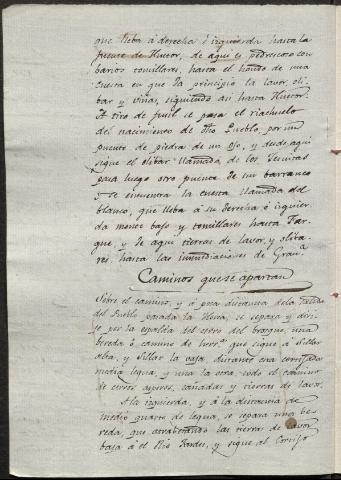 que lleba á derecha é izquierda hasta la
fuente de Huetor, de aqui es pedrescoso con
barios tomillares, hasta el hondo de una
cuesta en que da principio la lavor, oli-
bar y viñas, siguiendo asi hasta Huetor.
A tiro de fusil se pasa el riachuelo
del nacimiento de dho Pueblo, por un
puente de piedra de un ojo, y desde aqui
sigue el olibar llamado de los Jesuitas
pasa luego otro puente de un barranco
y se encuentra la cuesta llamada del
blanco, que lleba á su derecha é izquier-
da monte bajo y tomillares hasta Far-
gue, y de aqui tierras de lavor, y oliba-
res, hasta las inmediaciones de Granª
Caminos que se apartan
Sobre el camino, y á poca distancia de la
del Pueblo pasada la Hera, se separa y diri-
je por la espalda del cerro del bosque, una
bereda ó camino de herrª que sigue á Sillar
alta, y Sillar la baja, distante una
media legua, y una la otra, todo el camino
de cerros asperos, cañadas y tierras de lavor.
A la izquierda, y á la distancia de
medio quarto de legua, se separa una be-
reda, que atrabesando las tierras de lavor
baja á el Rio Fardes, y sigue al Cortijo